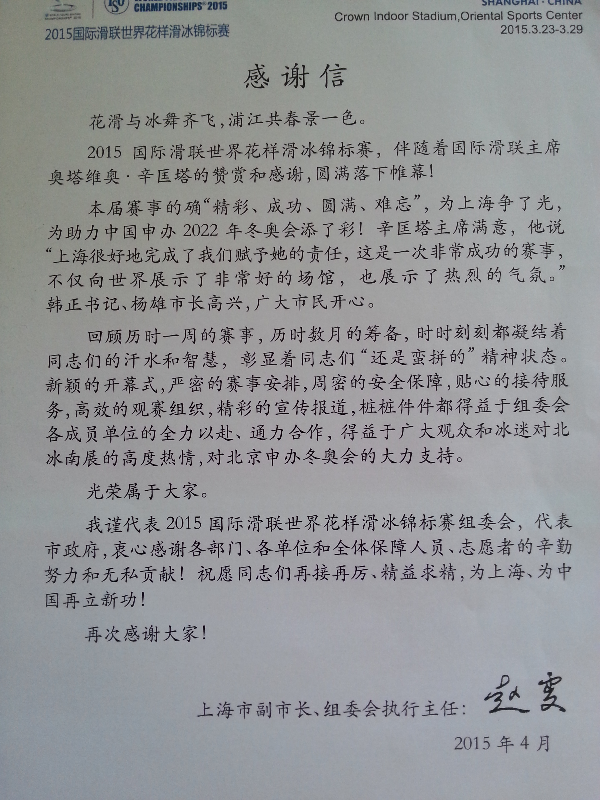 CHAMPIONSHIPS® 2015
2015国际滑联世界花样滑冰锦标赛
SHANGHAI · CHINA
Crown Indoor Stadium,Oriental Sports Center
2015.3.23-3.29
感谢信
花滑与冰舞齐飞,浦江共春景一色。
2015 国际滑联世界花样滑冰锦标赛，伴随着国际滑联主席
奥塔维奥·辛匡塔的赞赏和感谢,圆满落下帷幕!
本届赛事的确“精彩、成功、圆满、难忘”，为上海争了光，
为助力中国申办 2022 年冬奥会添了彩! 辛匡塔主席满意，他说
“上海很好地完成了我们赋予她的责任，这是一次非常成功的赛事，
不仅向世界展示了非常好的场馆，也展示了热烈的气氛。”
韩正书记、杨雄市长高兴，广大市民开心。
回顾历时一周的赛事，历时数月的筹备，时时刻刻都凝结着
同志们的汗水和智慧，彰显着同志们“还是蛮拼的”精神状态。
新颖的开幕式,严密的赛事安排,周密的安全保障,贴心的接待服
务,高效的观赛组织,精彩的宣传报道,桩桩件件都得益于组委会
各成员单位的全力以赴、通力合作，得益于广大观众和冰迷对北
冰南展的高度热情,对北京申办冬奥会的大力支持。
光荣属于大家。
我谨代表 2015 国际滑联世界花样滑冰锦标赛组委会，代表
市政府,衷心感谢各部门、各单位和全体保障人员、志愿者的辛勤
努力和无私贡献! 祝愿同志们再接再厉、精益求精,为上海、为中
国再立新功!
再次感谢大家!
上海市副市长、组委会执行主任: 赵雯
2015 年 4 月